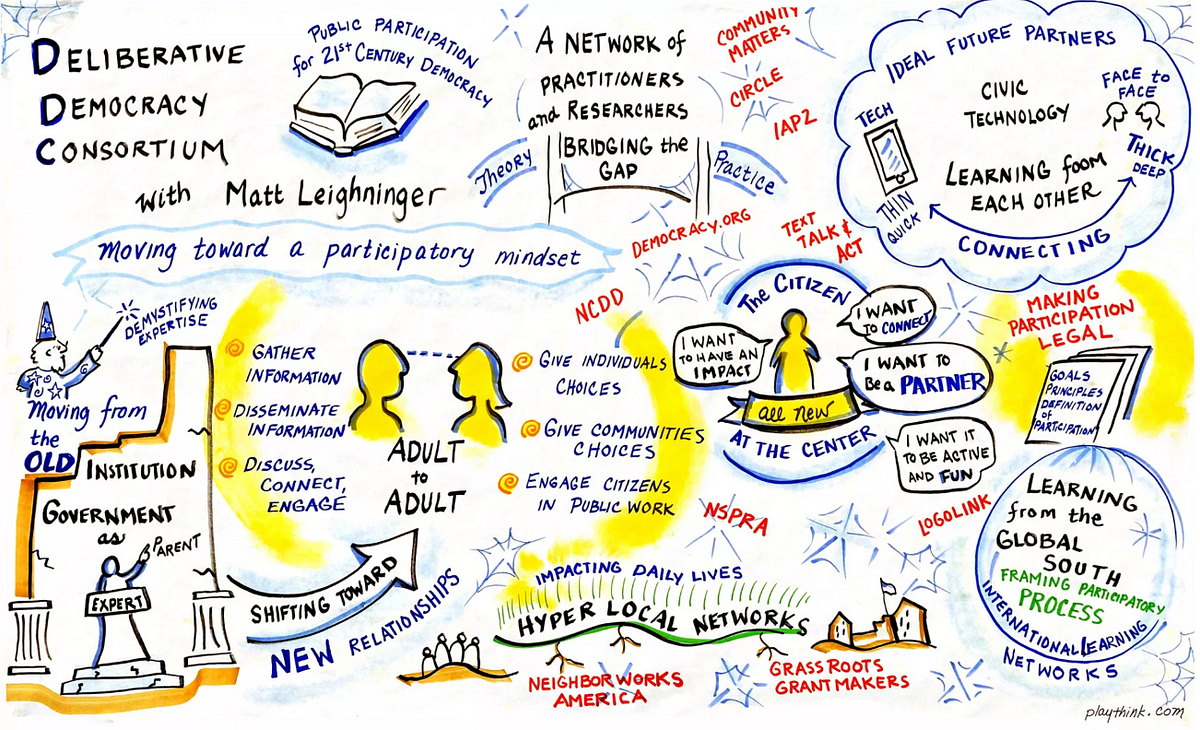 DELIBERATIVE
DEMOCRACY
CONSORTIUM
with Matt Leighninger
PUBLIC PARTICIPATION
for 21st CENTURY DEMOCRACY
A NETWORK of
PRACTITIONERS
and RESEARCHERS
BRIDGING the
GAP
Theory
Practice
COMMUNITY
MATTERS
CIRCLE
IAP2
DEMOCRACY.ORG
TEXT
TALK &
ACT
NCDD
IDEAL FUTURE PARTNERS
CIVIC
TECHNOLOGY
FACE to
FACE
TECH
THICK
DEEP
LEARNING from
EACH OTHER
THIN
QUICK
CONNECTING
moving toward a participatory mindset
DEMYSTIFYING
EXPERTISE
Moving from
the
OLD
INSTITUTION
GOVERNMENT
as
PARENT
EXPERT
GATHER
INFORMATION
DISSEMINATE
INFORMATION
DISCUSS,
CONNECT,
ENGAGE
ADULT
to
ADULT
GIVE INDIVIDUALS
CHOICES
GIVE COMMUNITIES
CHOICES
ENGAGE CITIZENS
IN PUBLIC WORK
SHIFTING TOWARD
NEW RELATIONSHIPS
The CITIZEN
I WANT
TO HAVE AN
IMPACT
I WANT
TO CONNECT
I WANT TO
Be a PARTNER
all new
AT THE CENTER
I WANT IT
TO BE ACTIVE
AND FUN
MAKING
PARTICIPATION
LEGAL
GOALS
PRINCIPLES
DEFINITION
of
PARTICIPATION
NSPRA
LOGOLINK
IMPACTING DAILY LIVES
HYPER LOCAL NETWORKS
NEIGHBORWORKS
AMERICA
GRASSROOTS
GRANTMAKERS
LEARNING
from the
GLOBAL
SOUTH
FRAMING PARTICIPATORY
PROCESS
INTERNATIONAL LEARNING
NETWORKS
playthink.com